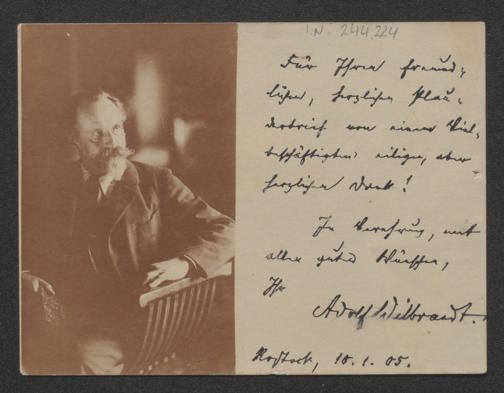 I.N. 244.224
Für Ihren freund-
lichen, herzlichen Plau-
derbrief von einem Viel-
beschäftigten eiligen, aber
herzlichen Dank!
In Verehrung, mit
allen guten Wünschen,
Ihr
Adolf Wilbrandt.
Rostock, 10.1.05.